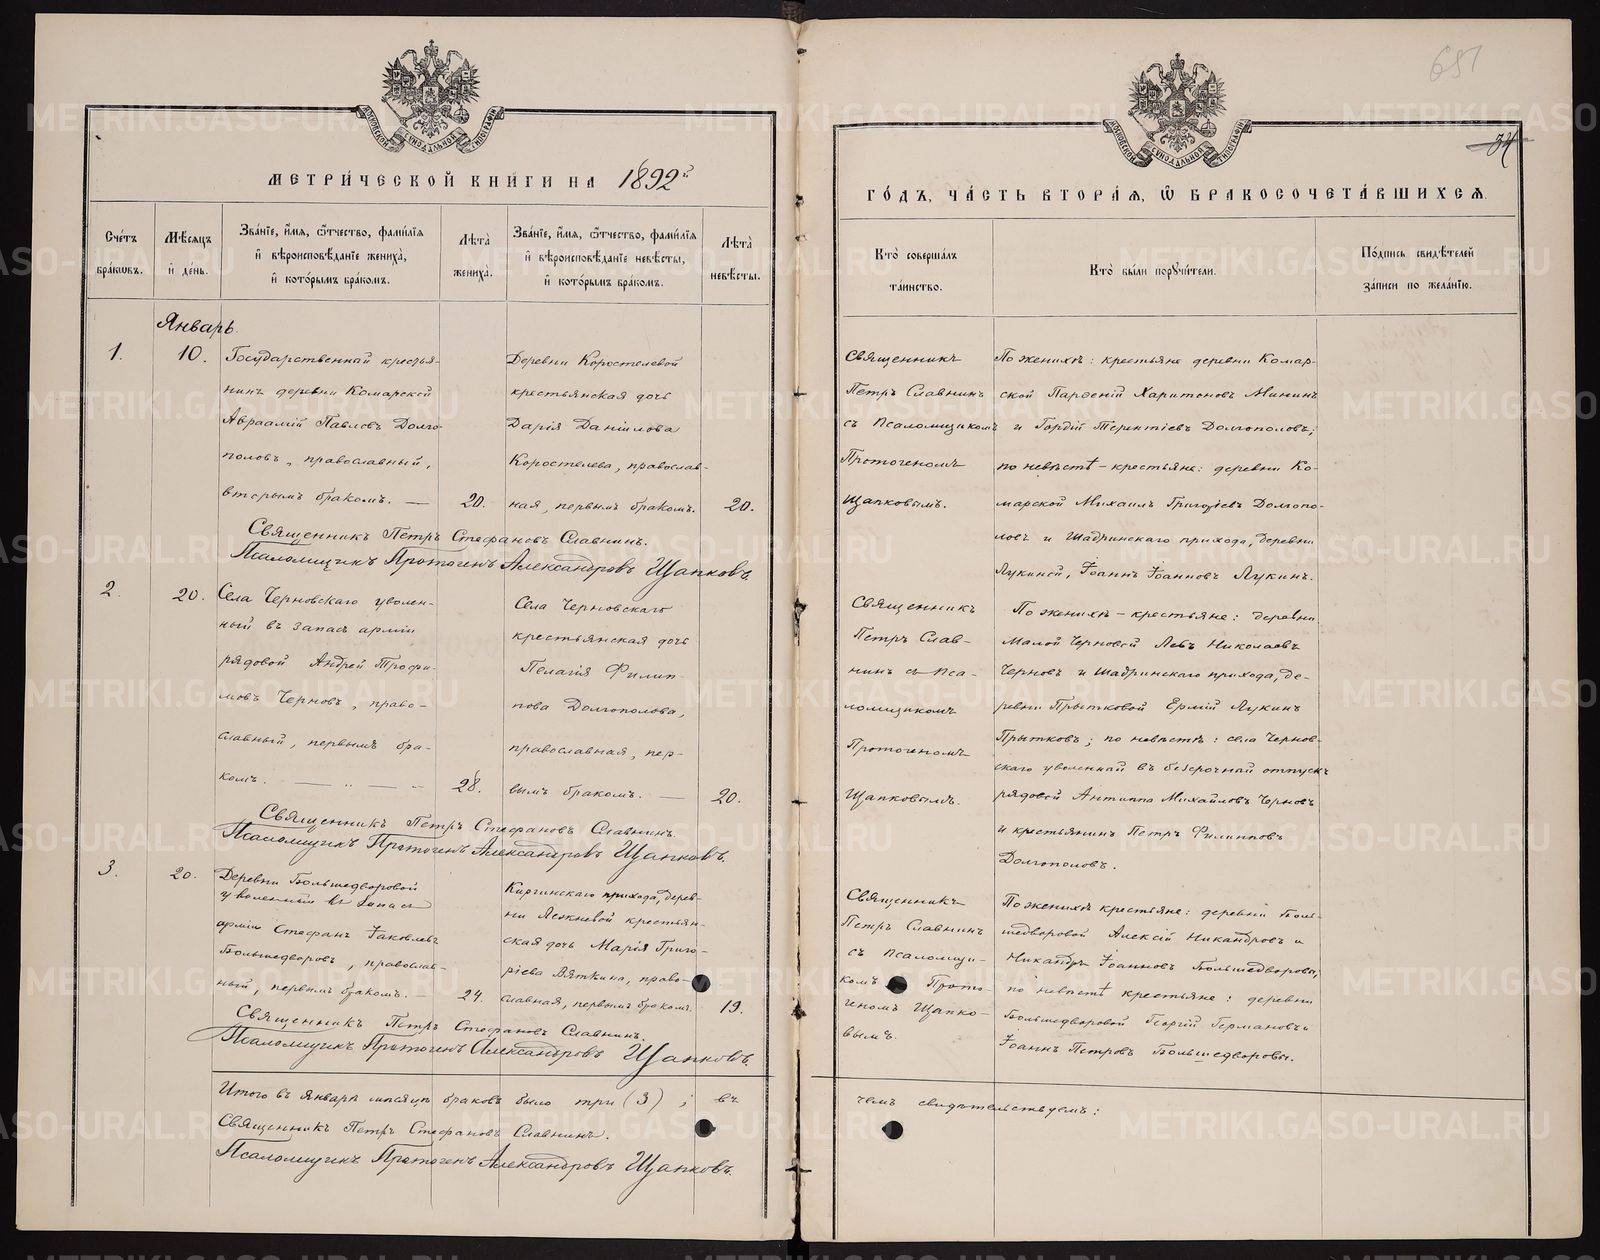 651
34
МОСКОВСКОЙ СѴНОДАЛЬНОЙ ТИПОГРАФІИ
МОСКОВСКОЙ СѴНОДАЛЬНОЙ ТИПОГРАФІИ
МЕТРИ́ЧЕСКОЙ КНИ́ГИ НА 1892й
ГО́ДЪ, ЧА́СТЬ ВТОРА́Я, Ѿ БРАКОСОЧЕТА́ВШИХСЯ.
Сче́тъ бра́ковъ.
Мѣ́сяцъ и҆ де́нь.
Зва́ніе, и҆́мя, ѻ҆́тчество, фами́лія
и҆ вѣроисповѣ́даніе жениха̀,
и҆ кото́рымъ бра́комъ.
Лѣ́та̀ жениха̀.
Зва́ніе, и҆́мя, ѻ҆́тчество, фами́лія
и҆ вѣроисповѣ́даніе невѣ́сты,
и҆ кото́рымъ бра́комъ.
Лѣ́та̀ невѣ́сты.
Кто̀ соверша́лъ
та́инство.
Кто̀ бы́ли поручи́тели.
По́дпись свидѣ́телей
за́писи по жела́нію.
Январь
1.
10.
Государственный крестья-
нинъ деревни Комарской
Авраамій Павловъ Долго-
половъ, православный,
вторымъ бракомъ. —
20.
Деревни Коростелевой
крестьянская дочь
Дарія Даніилова
Коростелева, православ-
ная, первымъ бракомъ.
20.
Священникъ
Петръ Славнинъ
съ Псаломщикомъ
Протогеномъ
Щапковымъ.
По женихѣ: крестьяне деревни Комар-
ской Парѳеній Харитоновъ Мининъ
и Гордій Терентіевъ Долгополовъ;
по невѣстѣ – крестьяне: деревни Ко-
марской Михаилъ Григоріевъ Долгопо-
ловъ и Шадринскаго прихода, деревни
Лукиной, Іоаннъ Іоанновъ Лукинъ.
Священникъ Петръ Стефановъ Славнинъ.
Псаломщикъ Протогенъ Александровъ Щапковъ.
2.
20.
Села Черновскаго уволен-
ный въ запасъ арміи
рядовой Андрей Трофи-
мовъ Черновъ, право-
славный, первымъ бра-
комъ. — „ — „
28.
Села Черновскаго
крестьянская дочь
Пелагія Филип-
пова Долгополова,
православная, пер-
вымъ бракомъ. —
20.
Священникъ
Петръ Слав-
нинъ съ Пса-
ломщикомъ
Протогеномъ
Щапковымъ.
По женихѣ – крестьяне: деревни
Малой Черновой Левъ Николаевъ
Черновъ и Шадринскаго прихода, де-
ревни Прытковой Ермій Лукинъ
Прытковъ; по невѣстѣ: села Чернов-
скаго уволенный въ безсрочный отпускъ
рядовой Антиппа Михайловъ Черновъ
и крестьянинъ Петръ Филипповъ
Долгополовъ.
Священникъ Петръ Стефановъ Славнинъ.
Псаломщикъ Протогенъ Александровъ Щапковъ.
3.
20.
Деревни Большедворовой
уволенный въ запасъ
арміи Стефанъ Іаковлевъ
Большедворовъ, православ-
ный, первымъ бракомъ. –
24.
Киргинскаго прихода, дерев-
ни крестьян-
ская дочь Марія Григо-
ріева Вяткина, право-
славная, первымъ бракомъ.
19.
Священникъ
Петръ Славнинъ
съ Псаломщи-
комъ Прото-
геномъ Щапко-
вымъ.
По женихѣ крестьяне: деревни Боль-
шедворовой Алексій Никандровъ и
Никандръ Іоанновъ Большедворовы;
по невѣстѣ крестьяне: деревни
Большедворовой Георгій Германовъ и
Іоаннъ Петровъ Большедворовы.
Священникъ Петръ Стефановъ Славнинъ.
Псаломщикъ Протогенъ Александровъ Щапковъ.
Итого въ Январѣ мѣсяцѣ браковъ было три (3); въ
чемъ свидѣтельствуемъ:
Священникъ Петръ Стефановъ Славнинъ.
Псаломщикъ Протогенъ Александровъ Щапковъ.
METRIKI.GASO-URAL.RU